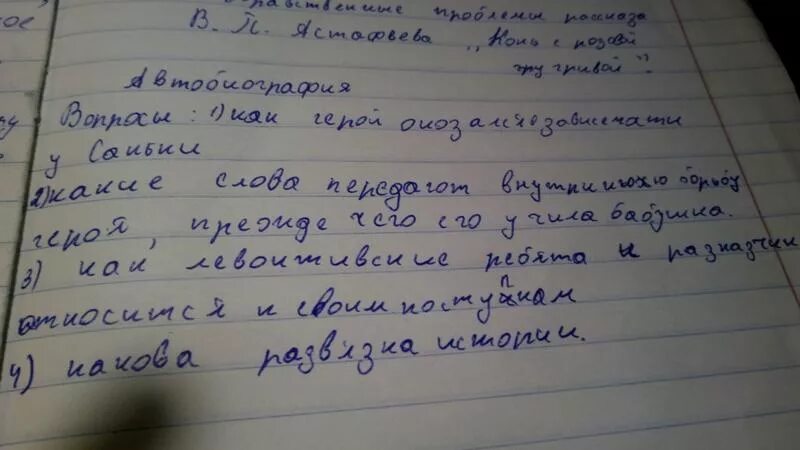 нравственные проблемы рассказа
В. П. Астафьева „Конь с розовой
гру гривой".
Автобиография
Вопросы: 1) как герой оказался зависечати
у Саньки
2) какие слова передают внутринюхю борьбу
героя, прежде чего его учила бабушка.
3) как левонтивские ребята и разказчик
относится к своим поступкам
4) какова развязка истории.